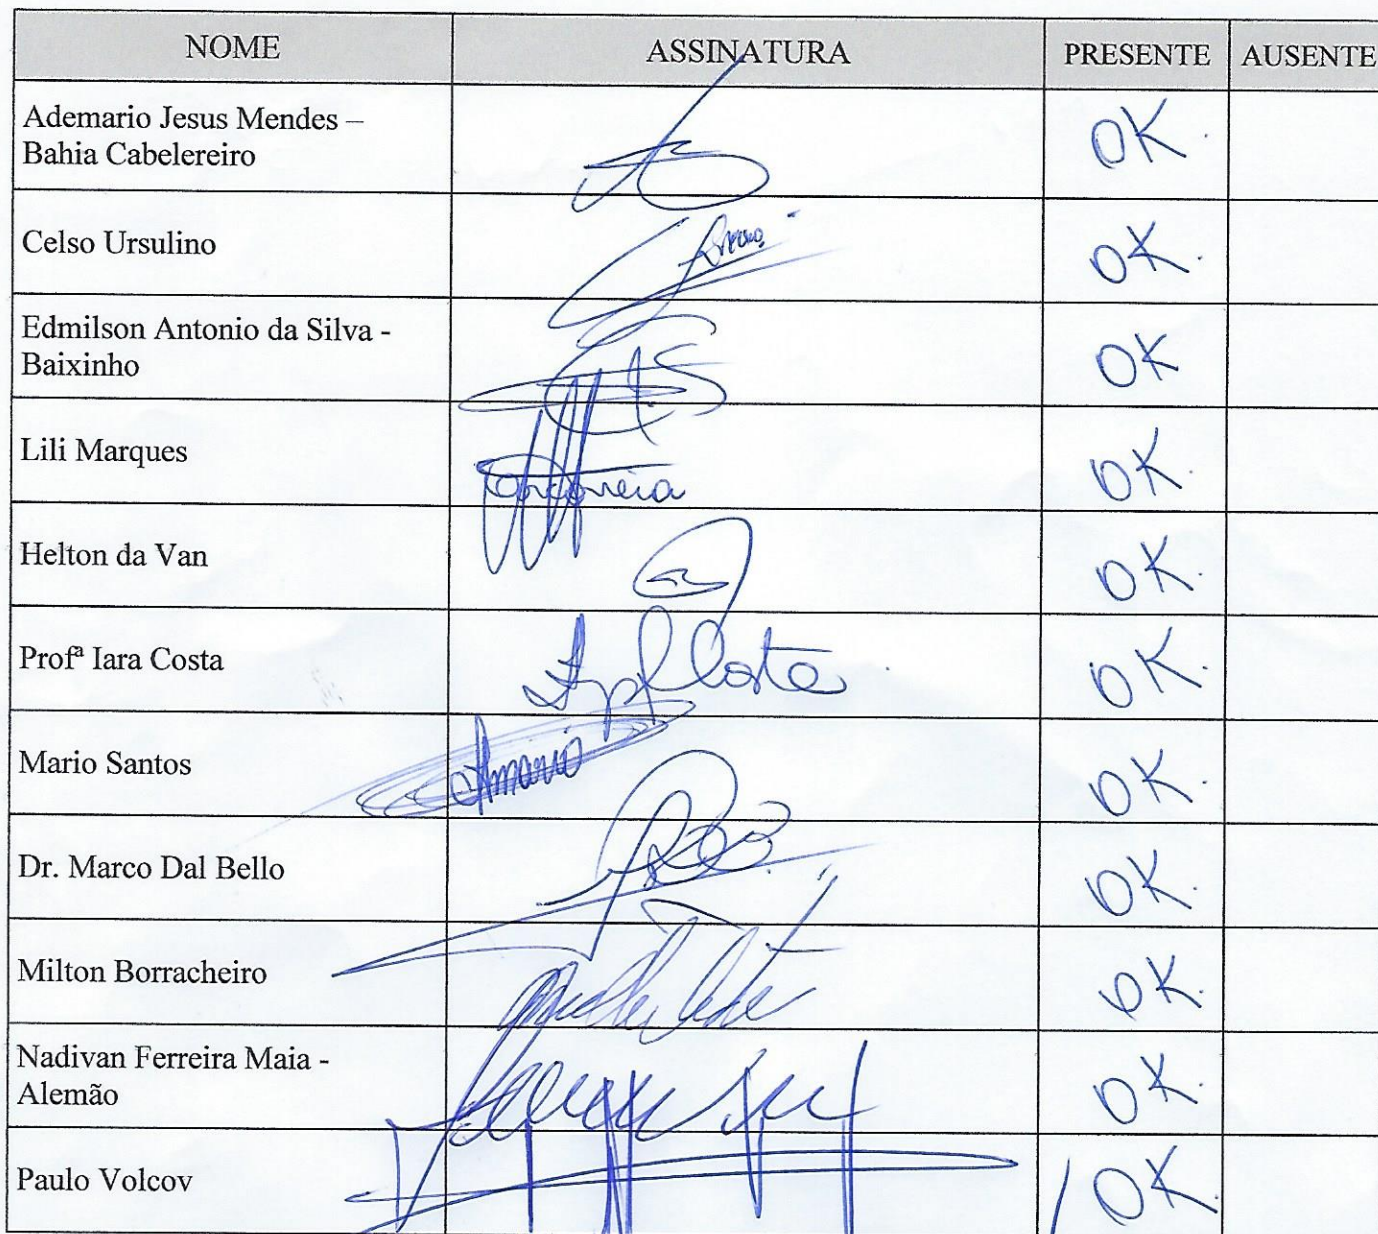 NOME ASSINATURA PRESENTE AUSENTE
Ademario Jesus Mendes –
Bahia Cabelereiro
OK.
Celso Ursulino
OK.
Edmilson Antonio da Silva -
Baixinho
OK
Lili Marques
OK.
Helton da Van
OK.
Profª Iara Costa
Costa
OK.
Mario Santos
OK.
Dr. Marco Dal Bello
OK.
Milton Borracheiro
OK.
Nadivan Ferreira Maia -
Alemão
OK.
Paulo Volcov
OK.